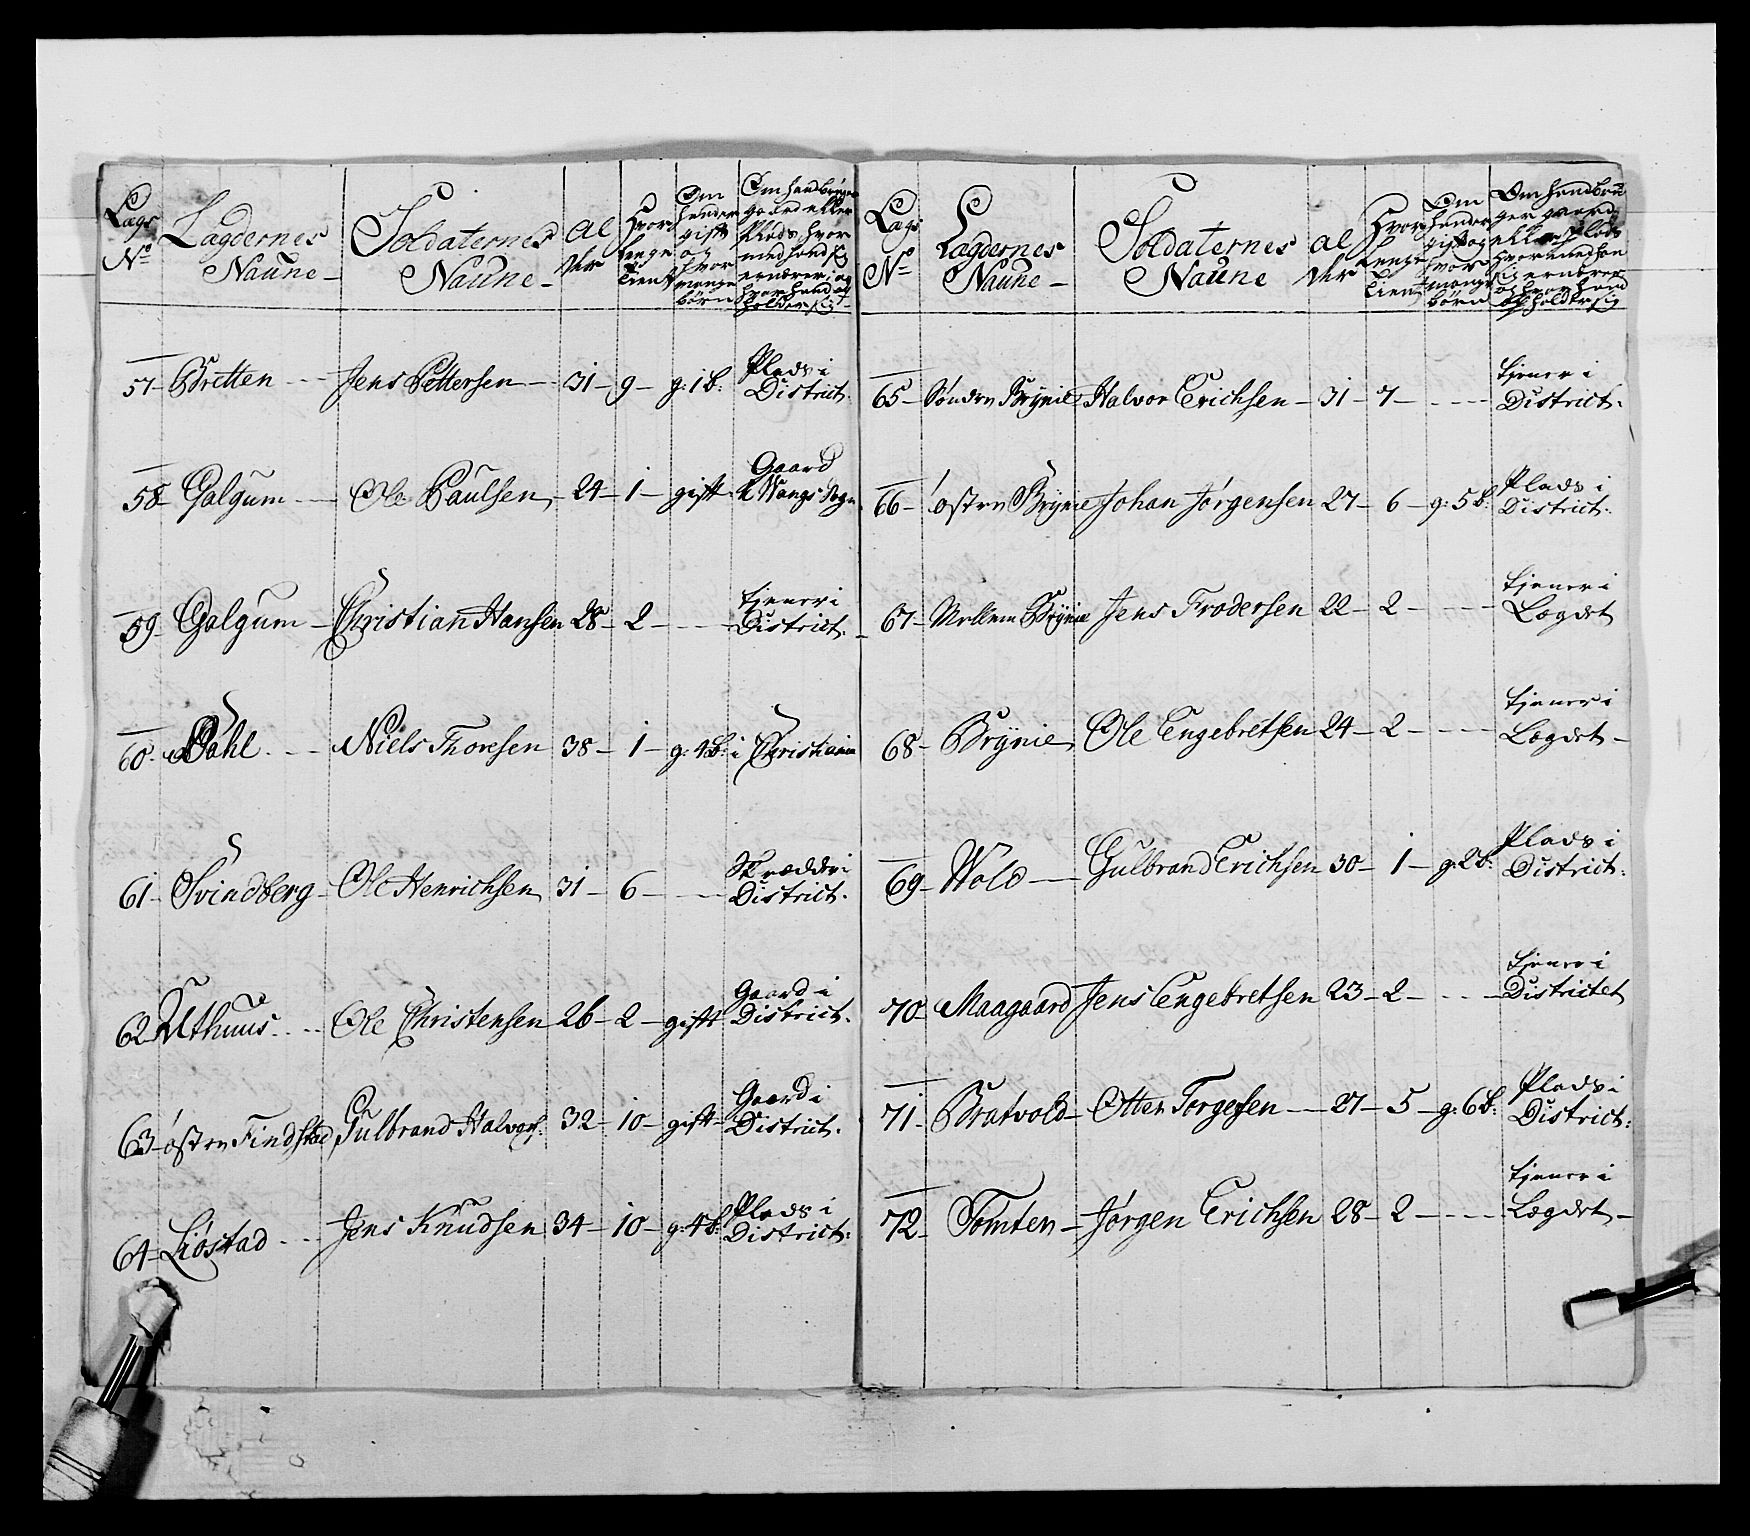 Lægs No
Lægdernes Naune
Soldaternes Naune
Al der
Hvor lenge tient
Om hand er gift og hvor mange børn
Om hand bruger gaard eller Plads hvor med hand sig ernærer, og hvor hand op holder sig
57 Britten Jens Pettersen 31 9 g: 1 b: Plads i District.
58 Galgum Ole Paulsen 24 1 gift Gaard i Wangs Sogn
59 Galgum Christian Hansen 28 2 tjener i District.
60 Dahl Niels Thoresen 38 1 g: 4 b: i Christiania
61 Svindberg Ole Henrichsen 31 6 Skrædder i District.
62 Uthuus Ole Christensen 26 2 gift Gaard i District.
63 østre Findstad Gulbrand Halvors: 32 10 gift Gaard i District.
64 Liøstad Jens Knudsen 34 10 g: 4 b: Plads i District:
Lægs No
Lægdernes Naune
Soldaternes Naune
al der
Hvor lenge tient
Om hand er gift og hvor mange børn
Om hand bruger gaard eller Plads hvor med han sig ernærer og hvor hand opholder sig
65 Søndre Brynie Halvor Erichsen 31 7 tjener i District.
66 østre Brynie Johan Jørgensen 27 6 g: 5 b: Plads i District.
67 Mellem Brynie Jens Frodersen 22 2 tjener i Lægdet
68 Brynie Ole Engebretsen 24 2 tjener i Lægdet
69 Wold Gulbrand Erichsen 30 1 g: 2 b: Plads i District:
70 Maagaard Jens Engebretsen 23 2 tjener i Districtet
71 Bratvold Otter Torgersen 27 5 g: 6 b: Plads i District:
72 Tomten Jørgen Erichsen 28 2 tjener i Lægdet